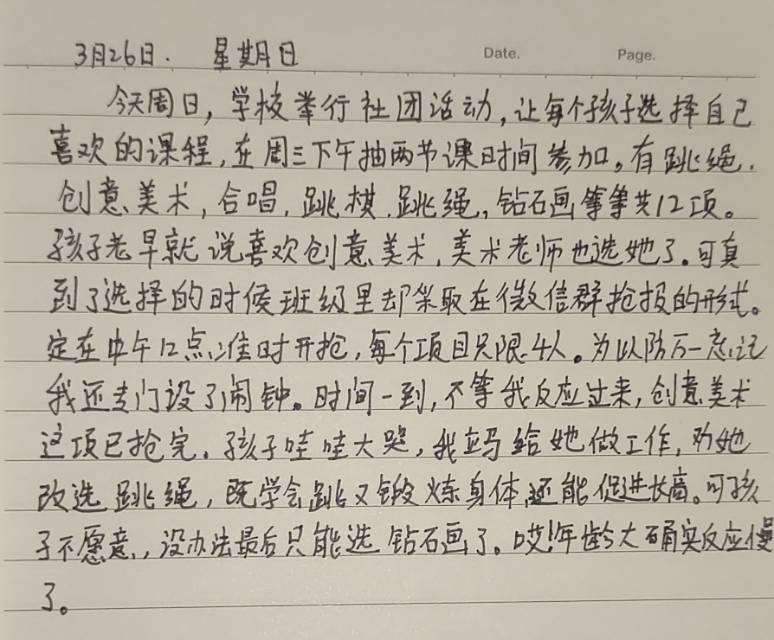 3月26日. 星期日
Date. Page.
今天周日,学校举行社团活动,让每个孩子选择自己
喜欢的课程,在周三下午抽两节课时间参加。有跳绳.
创意美术,合唱,跳棋.跳绳,钻石画等等共12项。
孩子老早就说喜欢创意美术,美术老师也选她了。可真
到了选择的时候班级里却采取在微信群抢报的形式。
定在中午12点准时开抢,每个项目只限4人。为以防万一忘记
我还专门设了闹钟。时间一到,不等我反应过来,创意美术
这项已抢完。孩子哇哇大哭,我妈给她做工作,劝她
改选跳绳,既学会跳又锻炼身体还能促进长高。可孩
子不愿意,没办法最后只能选钻石画了。哎!年龄大确实反应慢
了。